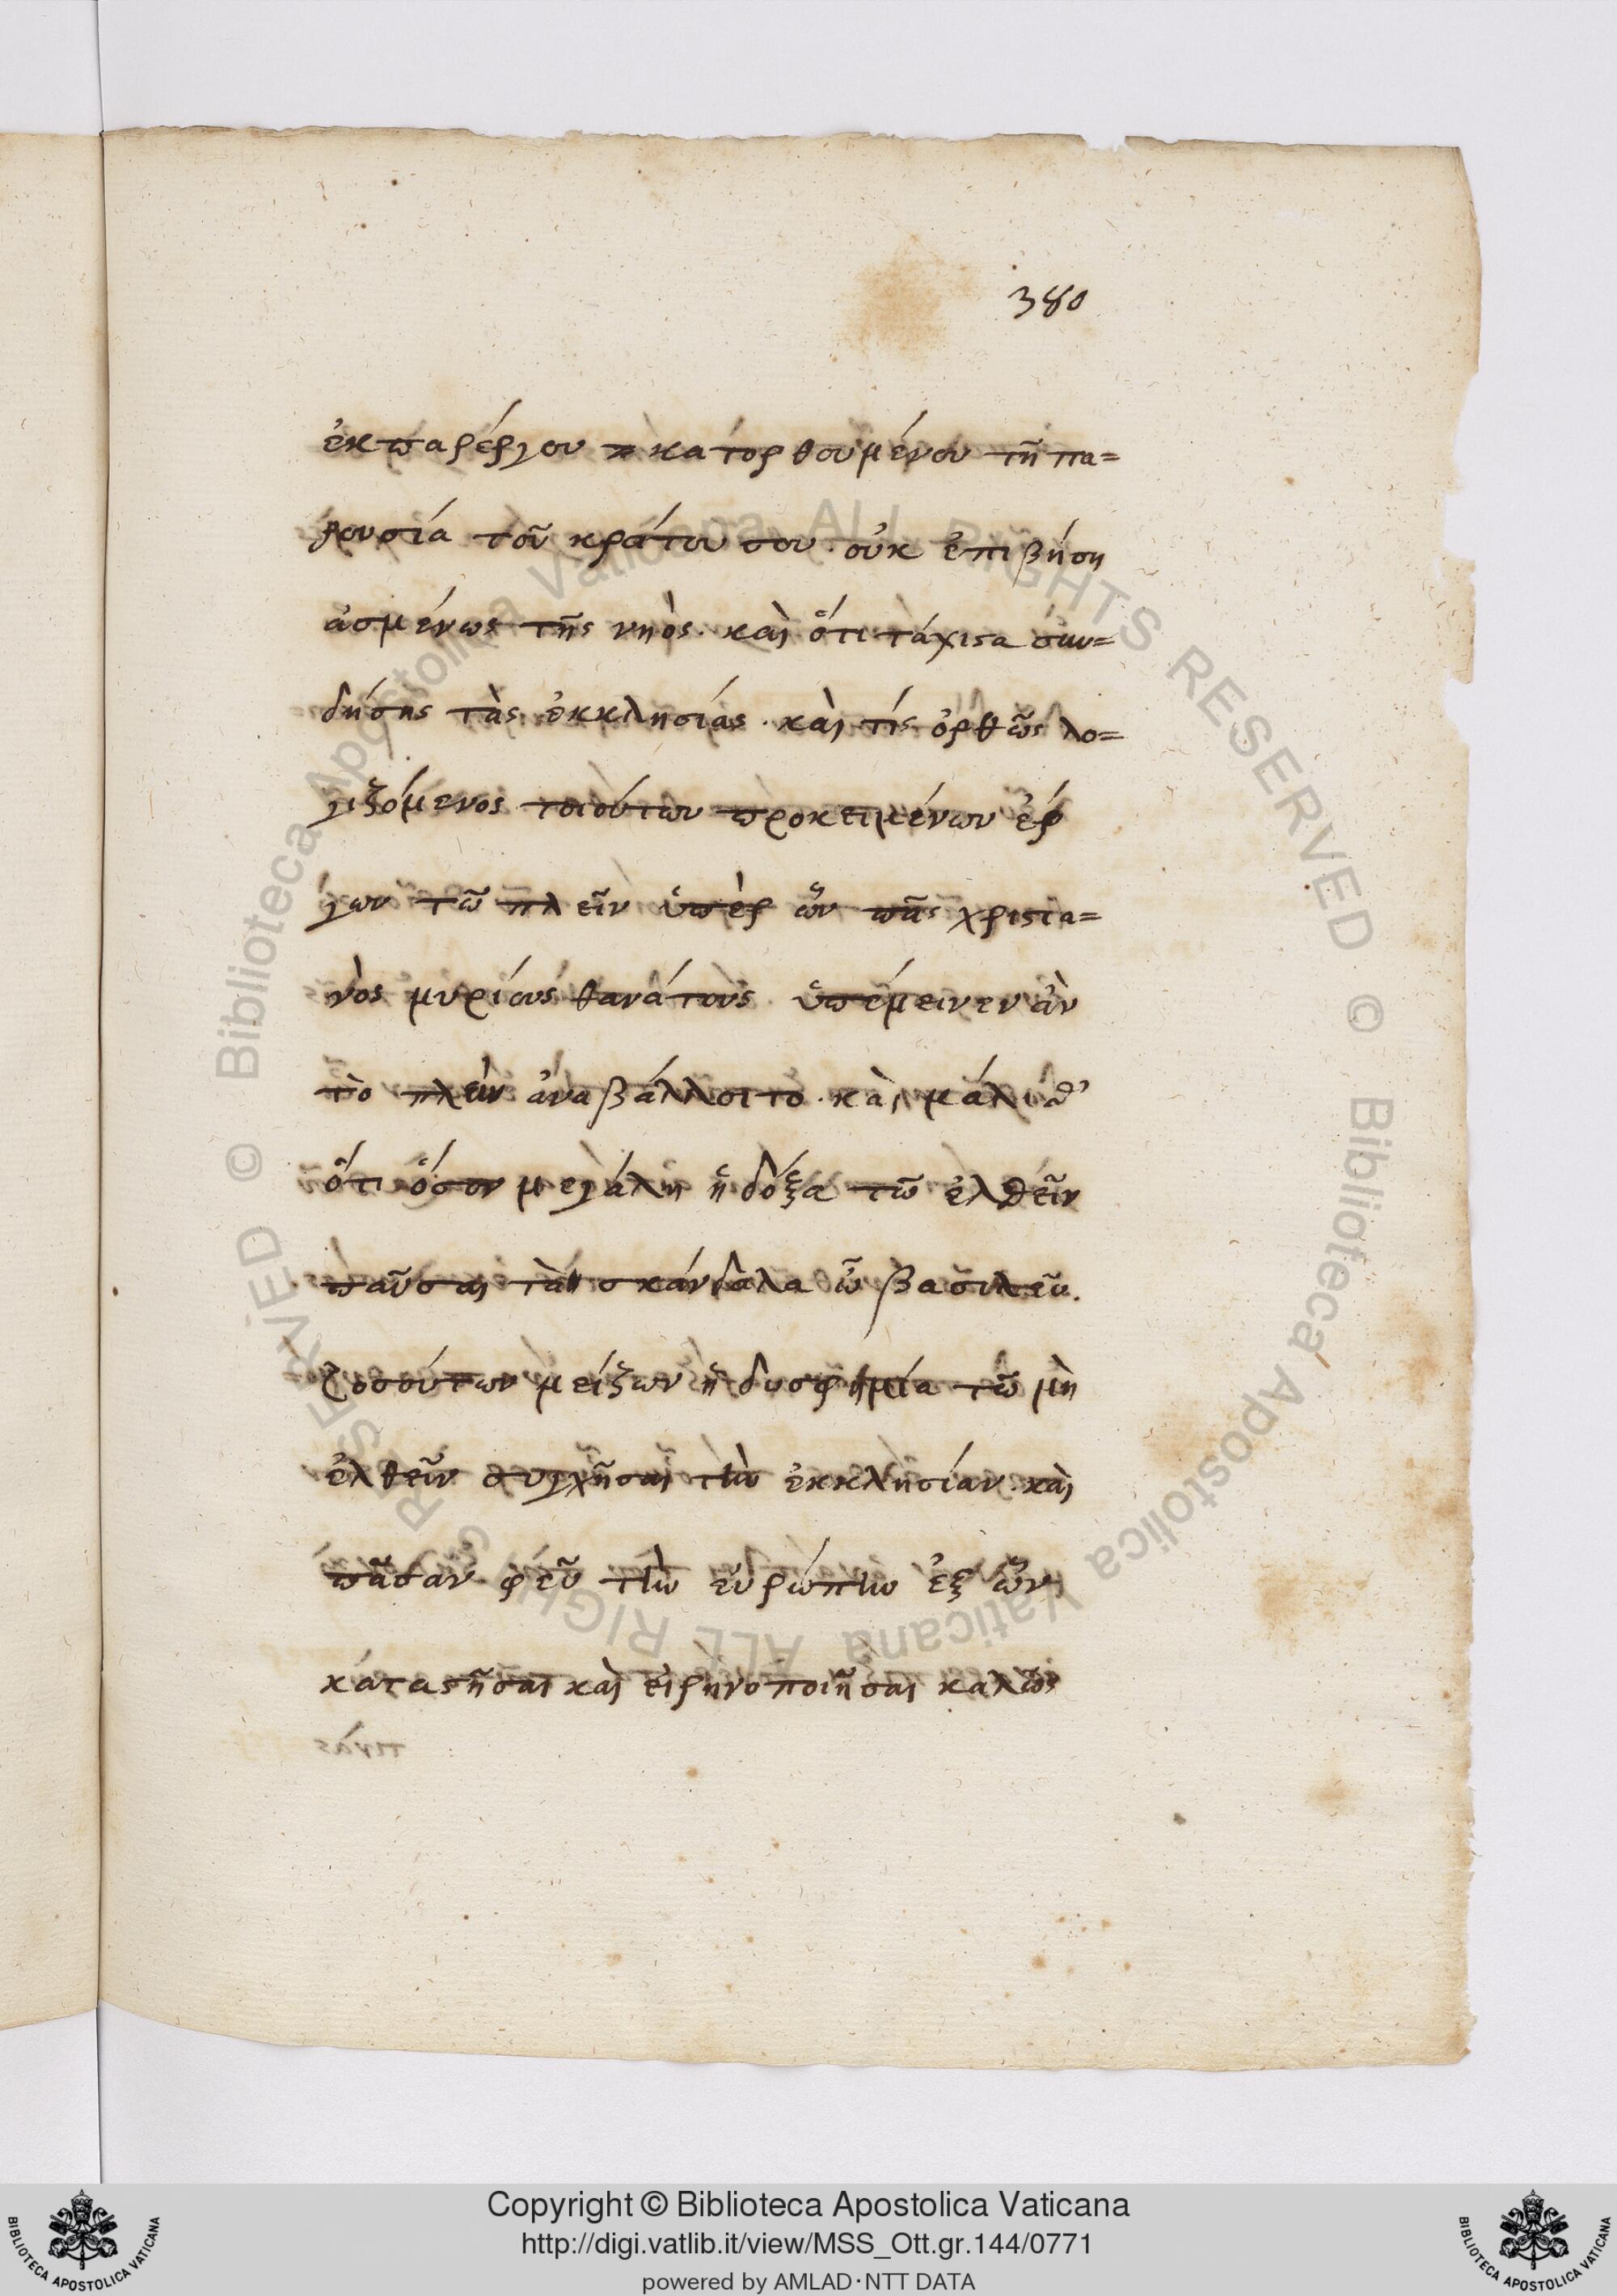 380
ἐκπαρέργου κατορθουμένου τῆ πα=
ρουσία τοῦ κράτου σου. οὐκ ἐπιβήση
ἀσμένως τῆς νηὸς. καὶ ὅτι τάχιστα συν=
δήσης τὰς ἐκκλησίας. καὶ τίς ὀρθῶς λο=
γιζόμενος τοιούτων προκειμένων ἐρ
γων τῶ πλεῖν ὑπὲρ ὧν πᾶς χριστια=
νὸς μυρίους θανάτους ὑπέμεινεν ἂν
τὸ πλεῖν ἀναβάλλοιτο. καὶ μάλισθ’
ὅτι ὅσον μεγάλη ἡ δόξα τῶ ἐλθεῖν
παῦσαι τὰ σκάνδαλα ὦ βασιλεῦ.
τοσούτων μείζων ἡ δυσφημία τῶ μὴ
ἐλθεῖν συγχῆσαι τὴν ἐκκλησίαν. καὶ
πᾶσαν φεῦ τὴν εὐρώπην ἐξ ὧν
καταστῆσαι καὶ εἰρηνοποιῆσαι καλῶς
Copyright © Biblioteca Apostolica Vaticana
http://digi.vatlib.it/view/MSS_Ott.gr.144/0771
powered by AMLAD·NTT DATA
BIBLIOTECA APOSTOLICA VATICANA
BIBLIOTECA APOSTOLICA VATICANA
© Biblioteca Apostolica Vaticana ALL RIGHTS RESERVED
© Biblioteca Apostolica Vaticana ALL RIGHTS RESERVED